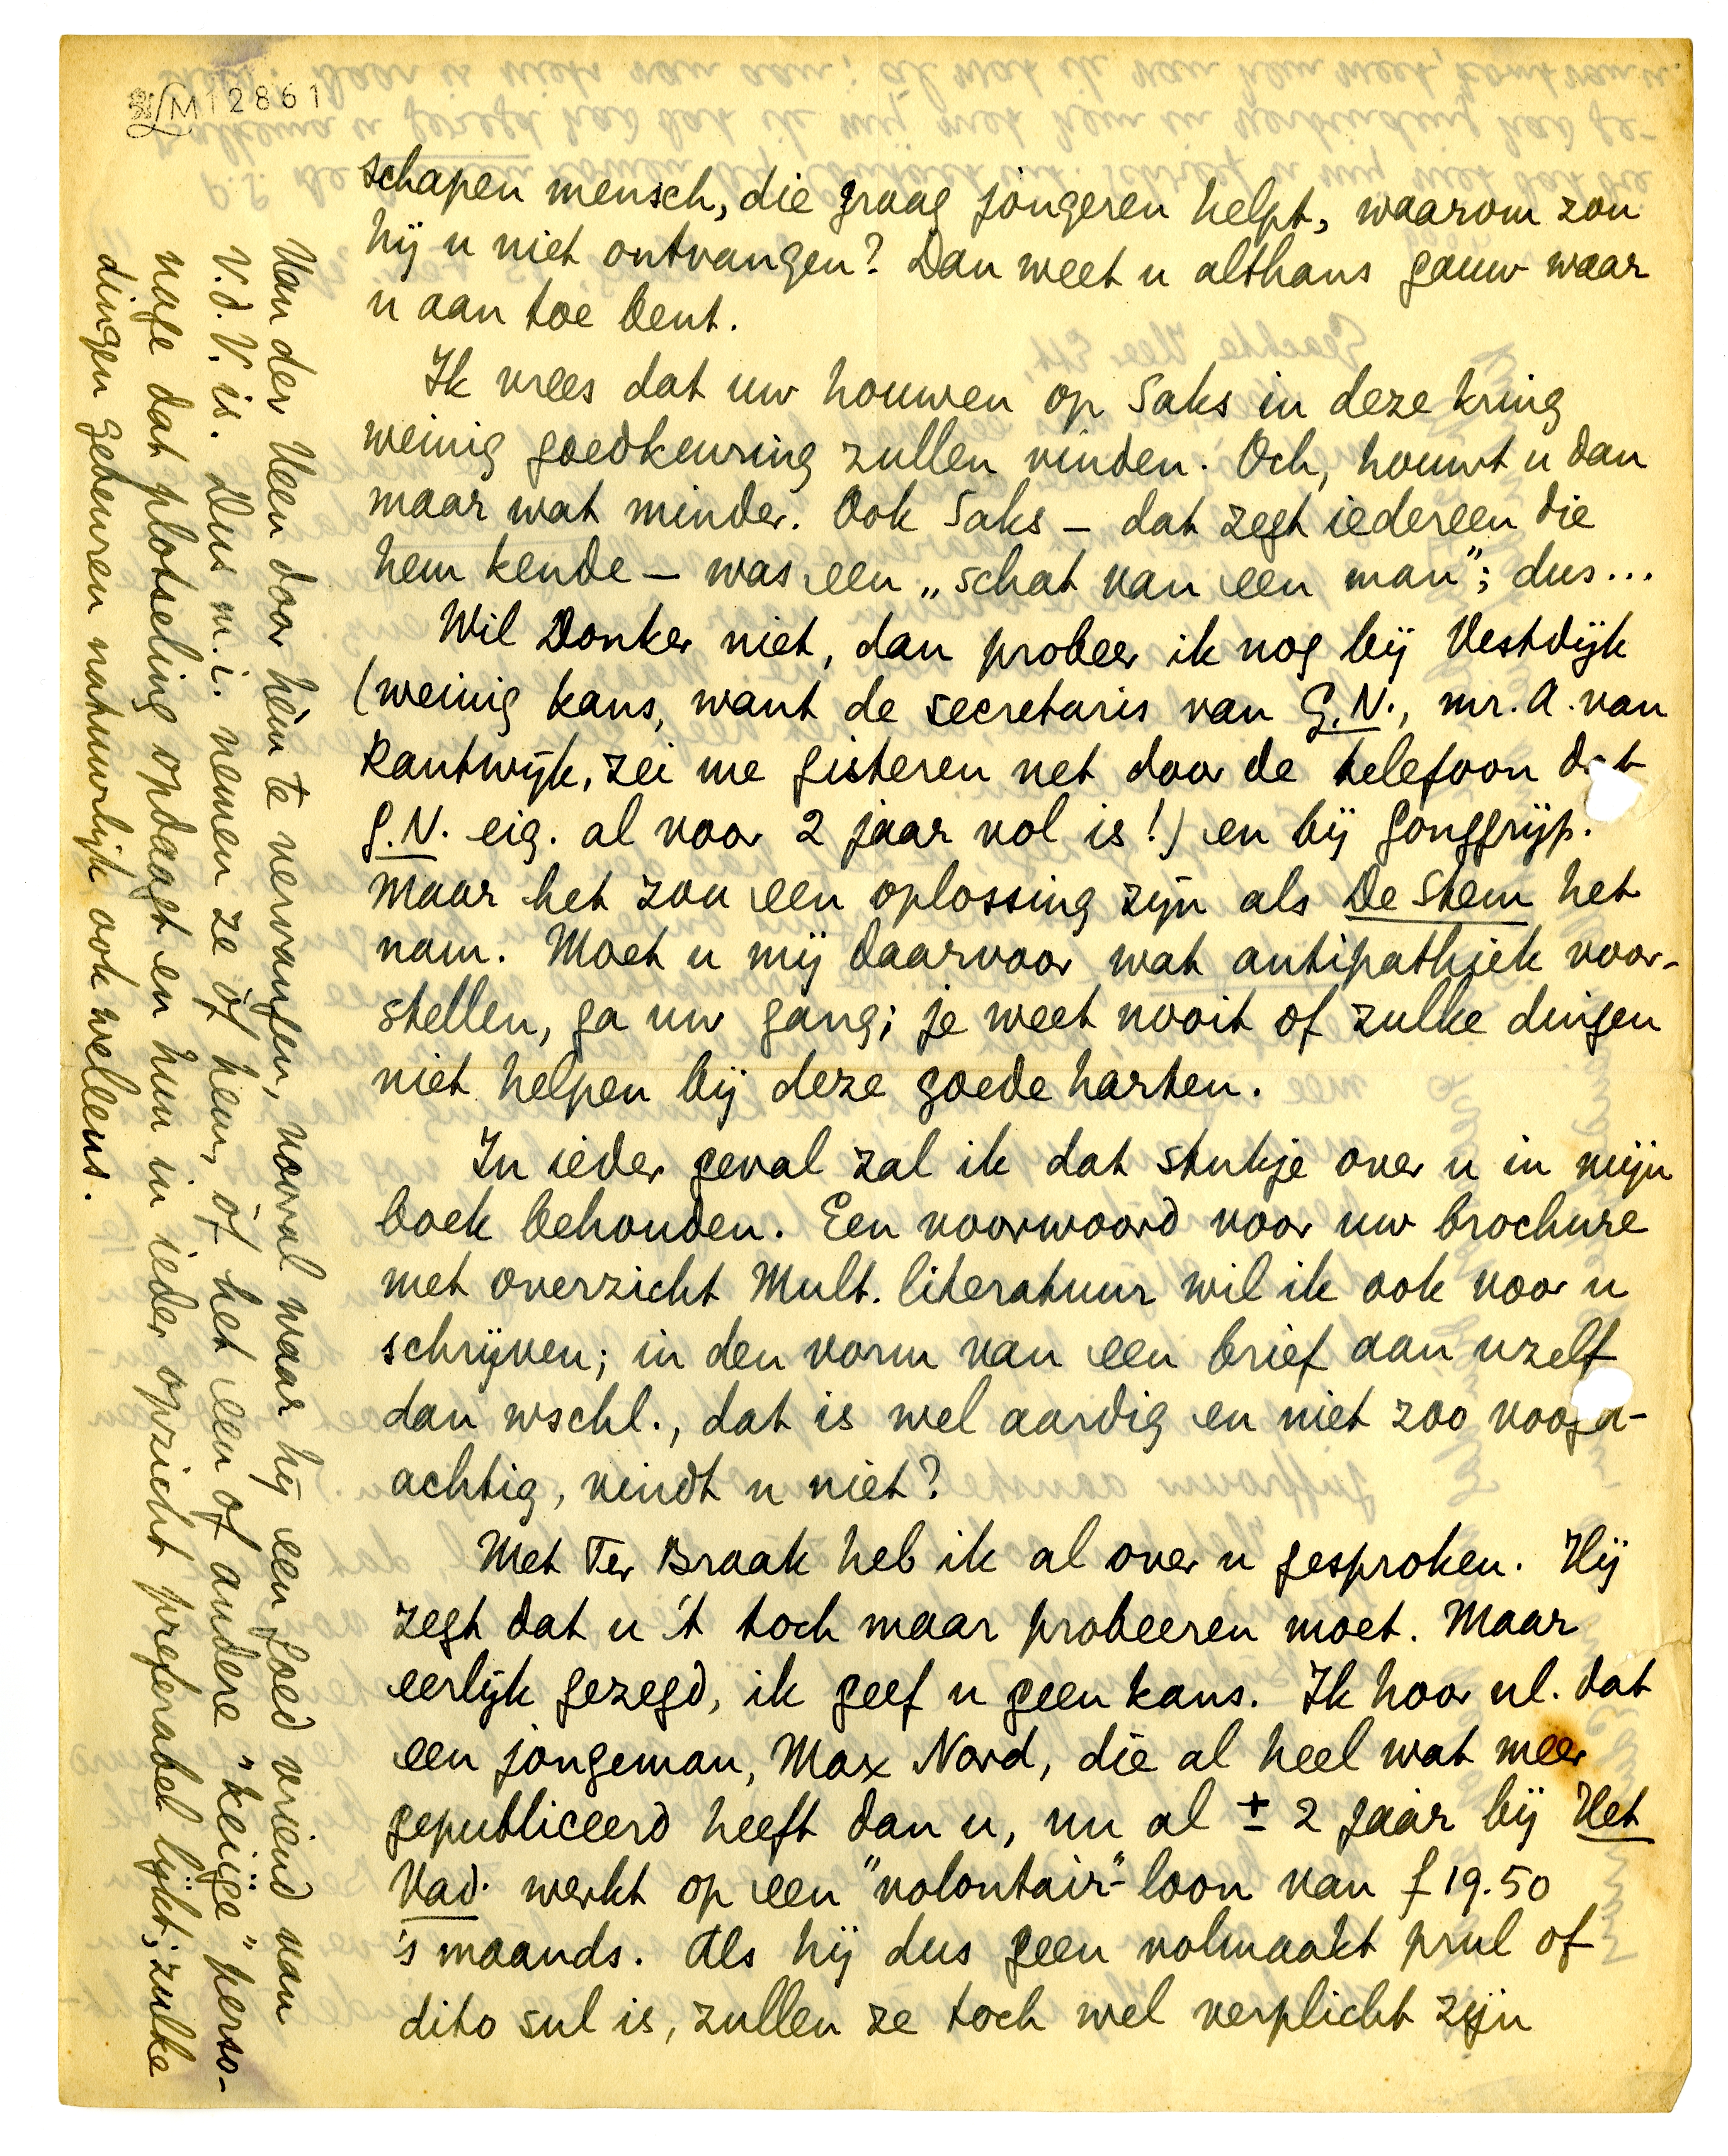 M 12861
schapen mensch, die graag jongeren helpt, waarom zou
hij u niet ontvangen? Dan weet u althans gauw waar
u aan toe bent.
Ik vrees dat uw houwen op Saks in deze kring
weinig goedkeuring zullen vinden. Och, houwt u dan
maar wat minder. Ook Saks – dat zegt iedereen die
hem kende – was een „schat van een man"; dus...
Wil Donker niet, dan probeer ik nog bij Vestdijk
(weinig kans, want de secretaris van G.N., mr. A. van
Rantwijk, zei me gisteren net door de telefoon dat
G.N. eig. al voor 2 jaar vol is!) en bij Gonggrijp.
Maar het zou een oplossing zijn als De Stem het
nam. Moet u mij daarvoor wat antipathiek voor-
stellen, ga uw gang; je weet nooit of zulke dingen
niet helpen bij deze goede harten.
In ieder geval zal ik dat stukje over u in mijn
boek behouden. Een voorwoord voor uw brochure
met overzicht Mult. literatuur wil ik ook voor u
schrijven; in den vorm van een brief aan uzelf
dan wschl., dat is wel aardig en niet zoo voogd-
achtig, vindt u niet?
Met Ter Braak heb ik al over u gesproken. Hij
zegt dat u 't toch maar probeeren moet. Maar
eerlijk gezegd, ik geef u geen kans. Ik hoor nl. dat
een jongeman, Max Nord, die al heel wat meer
gepubliceerd heeft dan u, nu al ± 2 jaar bij Het
Vad. werkt op een "volontair"-loon van f 19.50
's maands. Als hij dus geen volmaakt prul of
dito sul is, zullen ze toch wel verplicht zijn
Van der Veen door hèm te vervangen, vooral waar hij een goed vriend van
V.d.V. is. Dus m.i. nemen ze òf hem, òf het een of andere "keiïge" perso-
nage dat plotseling opdaagt en hun in ieder opzicht preferabel lijkt; zulke
dingen gebeuren natuurlijk ook weleens.